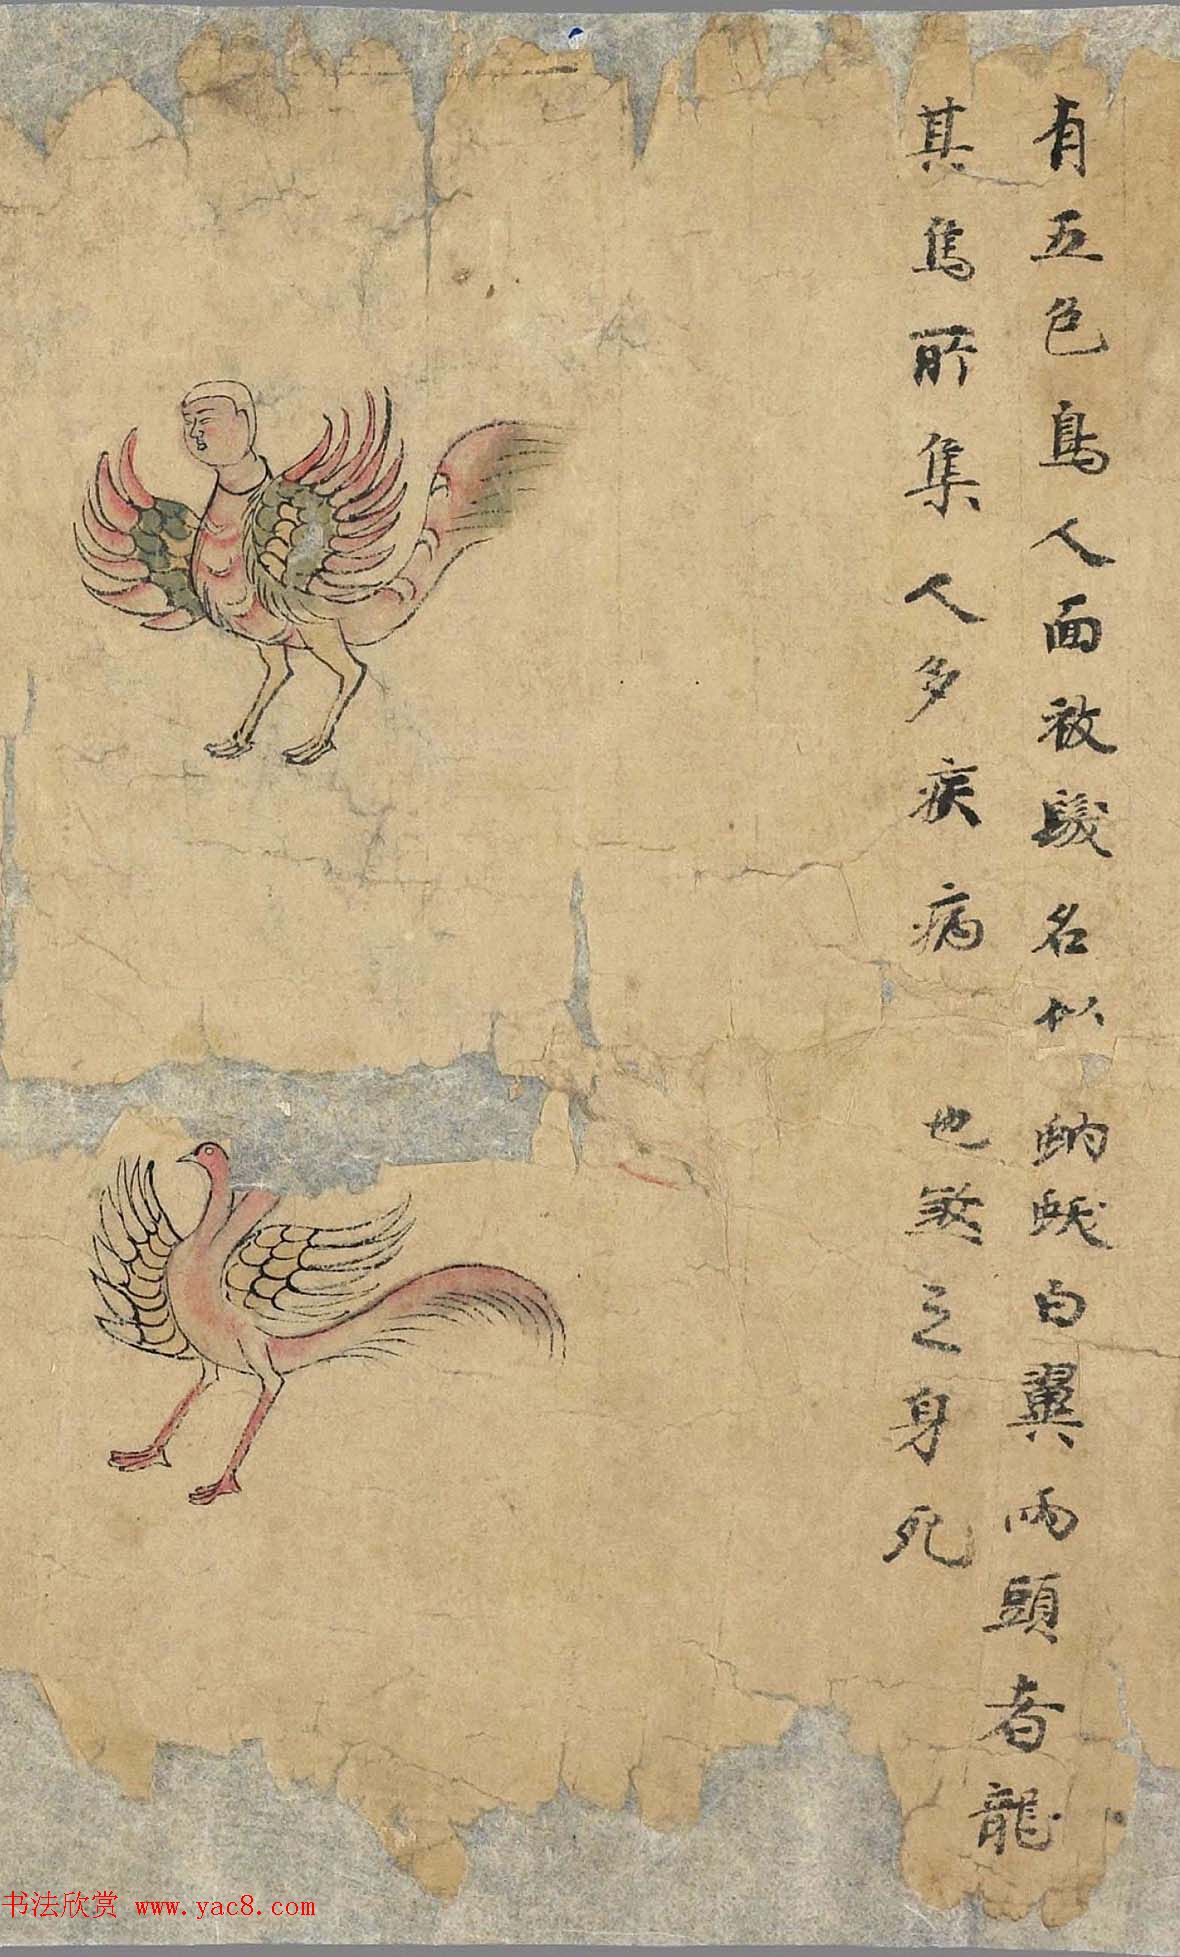 有五色鳥人面被髮名似
其鳥所集人多疾病
蚋白翼兩頭者龍
也煞之身死
书法欣赏 www.yac8.com